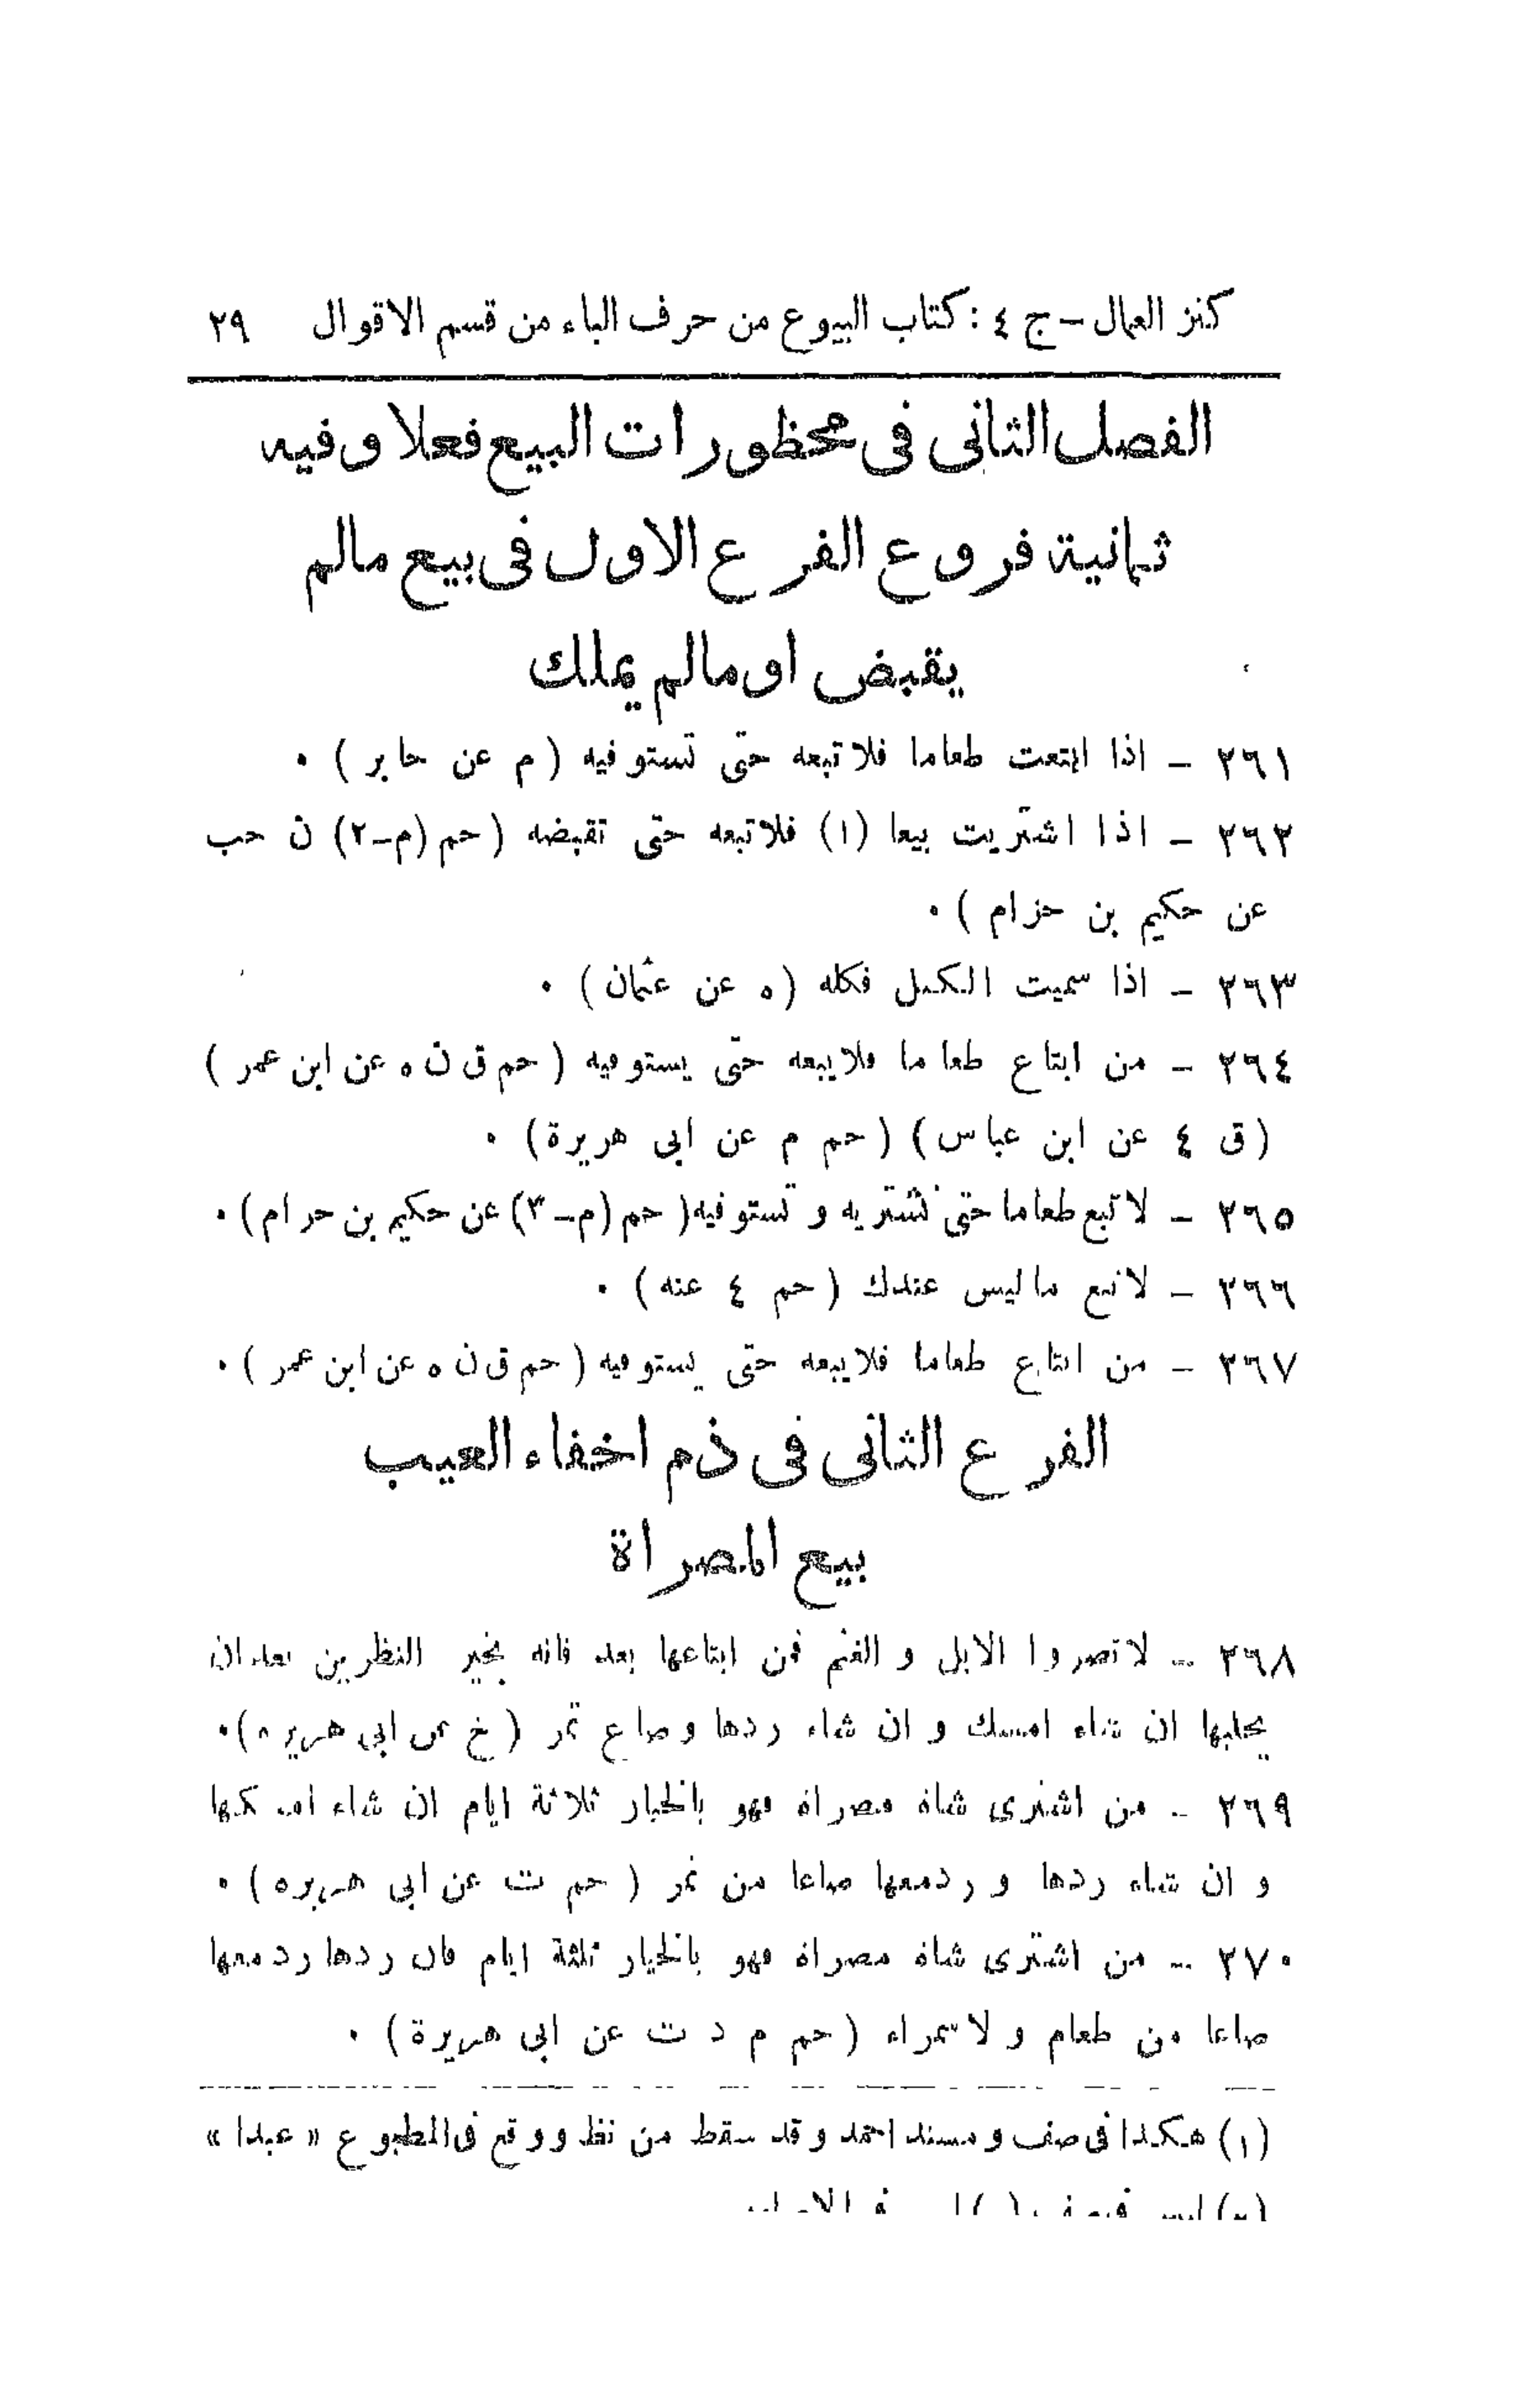 كنز العمال – ج ٤ : كتاب البيوع من حرف الباء من قسم الاقوال ٢٩
الفصل الثانى فى محظورات البيع فعلا وفيه
ثمانية فروع الفرع الاول فى بيع مالم
يقبض او مالم يملك
٢٦١ – اذا ابتعت طعاما فلا تبعه حتى تستوفيه ( م عن جابر ) ٠
٢٦٢ – اذا اشتريت بيعا (١) فلا تبعه حتى تقبضه ( حم (م-٢) ن حب
عن حكيم بن حزام ) ٠
٢٦٣ – اذا سميت الكيل فكله ( ه عن عثمان ) ٠
٢٦٤ – من ابتاع طعاما فلا يبعه حتى يستوفيه ( حم ق ن ه عن ابن عمر )
( ق ٤ عن ابن عباس ) ( حم م عن ابى هريرة ) ٠
٢٦٥ – لا تبع طعاما حتى تشتريه و تستوفيه ( حم (م-٣) عن حكيم بن حزام ) ٠
٢٦٦ – لا تبع ما ليس عندك ( حم ٤ عنه ) ٠
٢٦٧ – من ابتاع طعاما فلا يبعه حتى يستوفيه ( حم ق ن ه عن ابن عمر ) ٠
الفرع الثانى فى ذم اخفاء العيب
بيع المصراة
٢٦٨ – لا تصروا الابل و الغنم فمن ابتاعها بعد فانه بخير النظرين بعد ان
يحلبها ان شاء امسك و ان شاء ردها و صاع تمر ( خ عن ابى هريرة ) ٠
٢٦٩ – من اشترى شاة مصراة فهو بالخيار ثلاثة ايام ان شاء امسكها
و ان شاء ردها و رد معها صاعا من تمر ( حم ت عن ابى هريره ) ٠
٢٧٠ – من اشترى شاة مصراة فهو بالخيار ثلثة ايام فان ردها رد معها
صاعا من طعام و لا سمراء ( حم م د ت عن ابى هريرة ) ٠
(١) هكذا فى صف و مسند احمد و قد سقط من نظ و وقع فى المطبوع « عبدا »